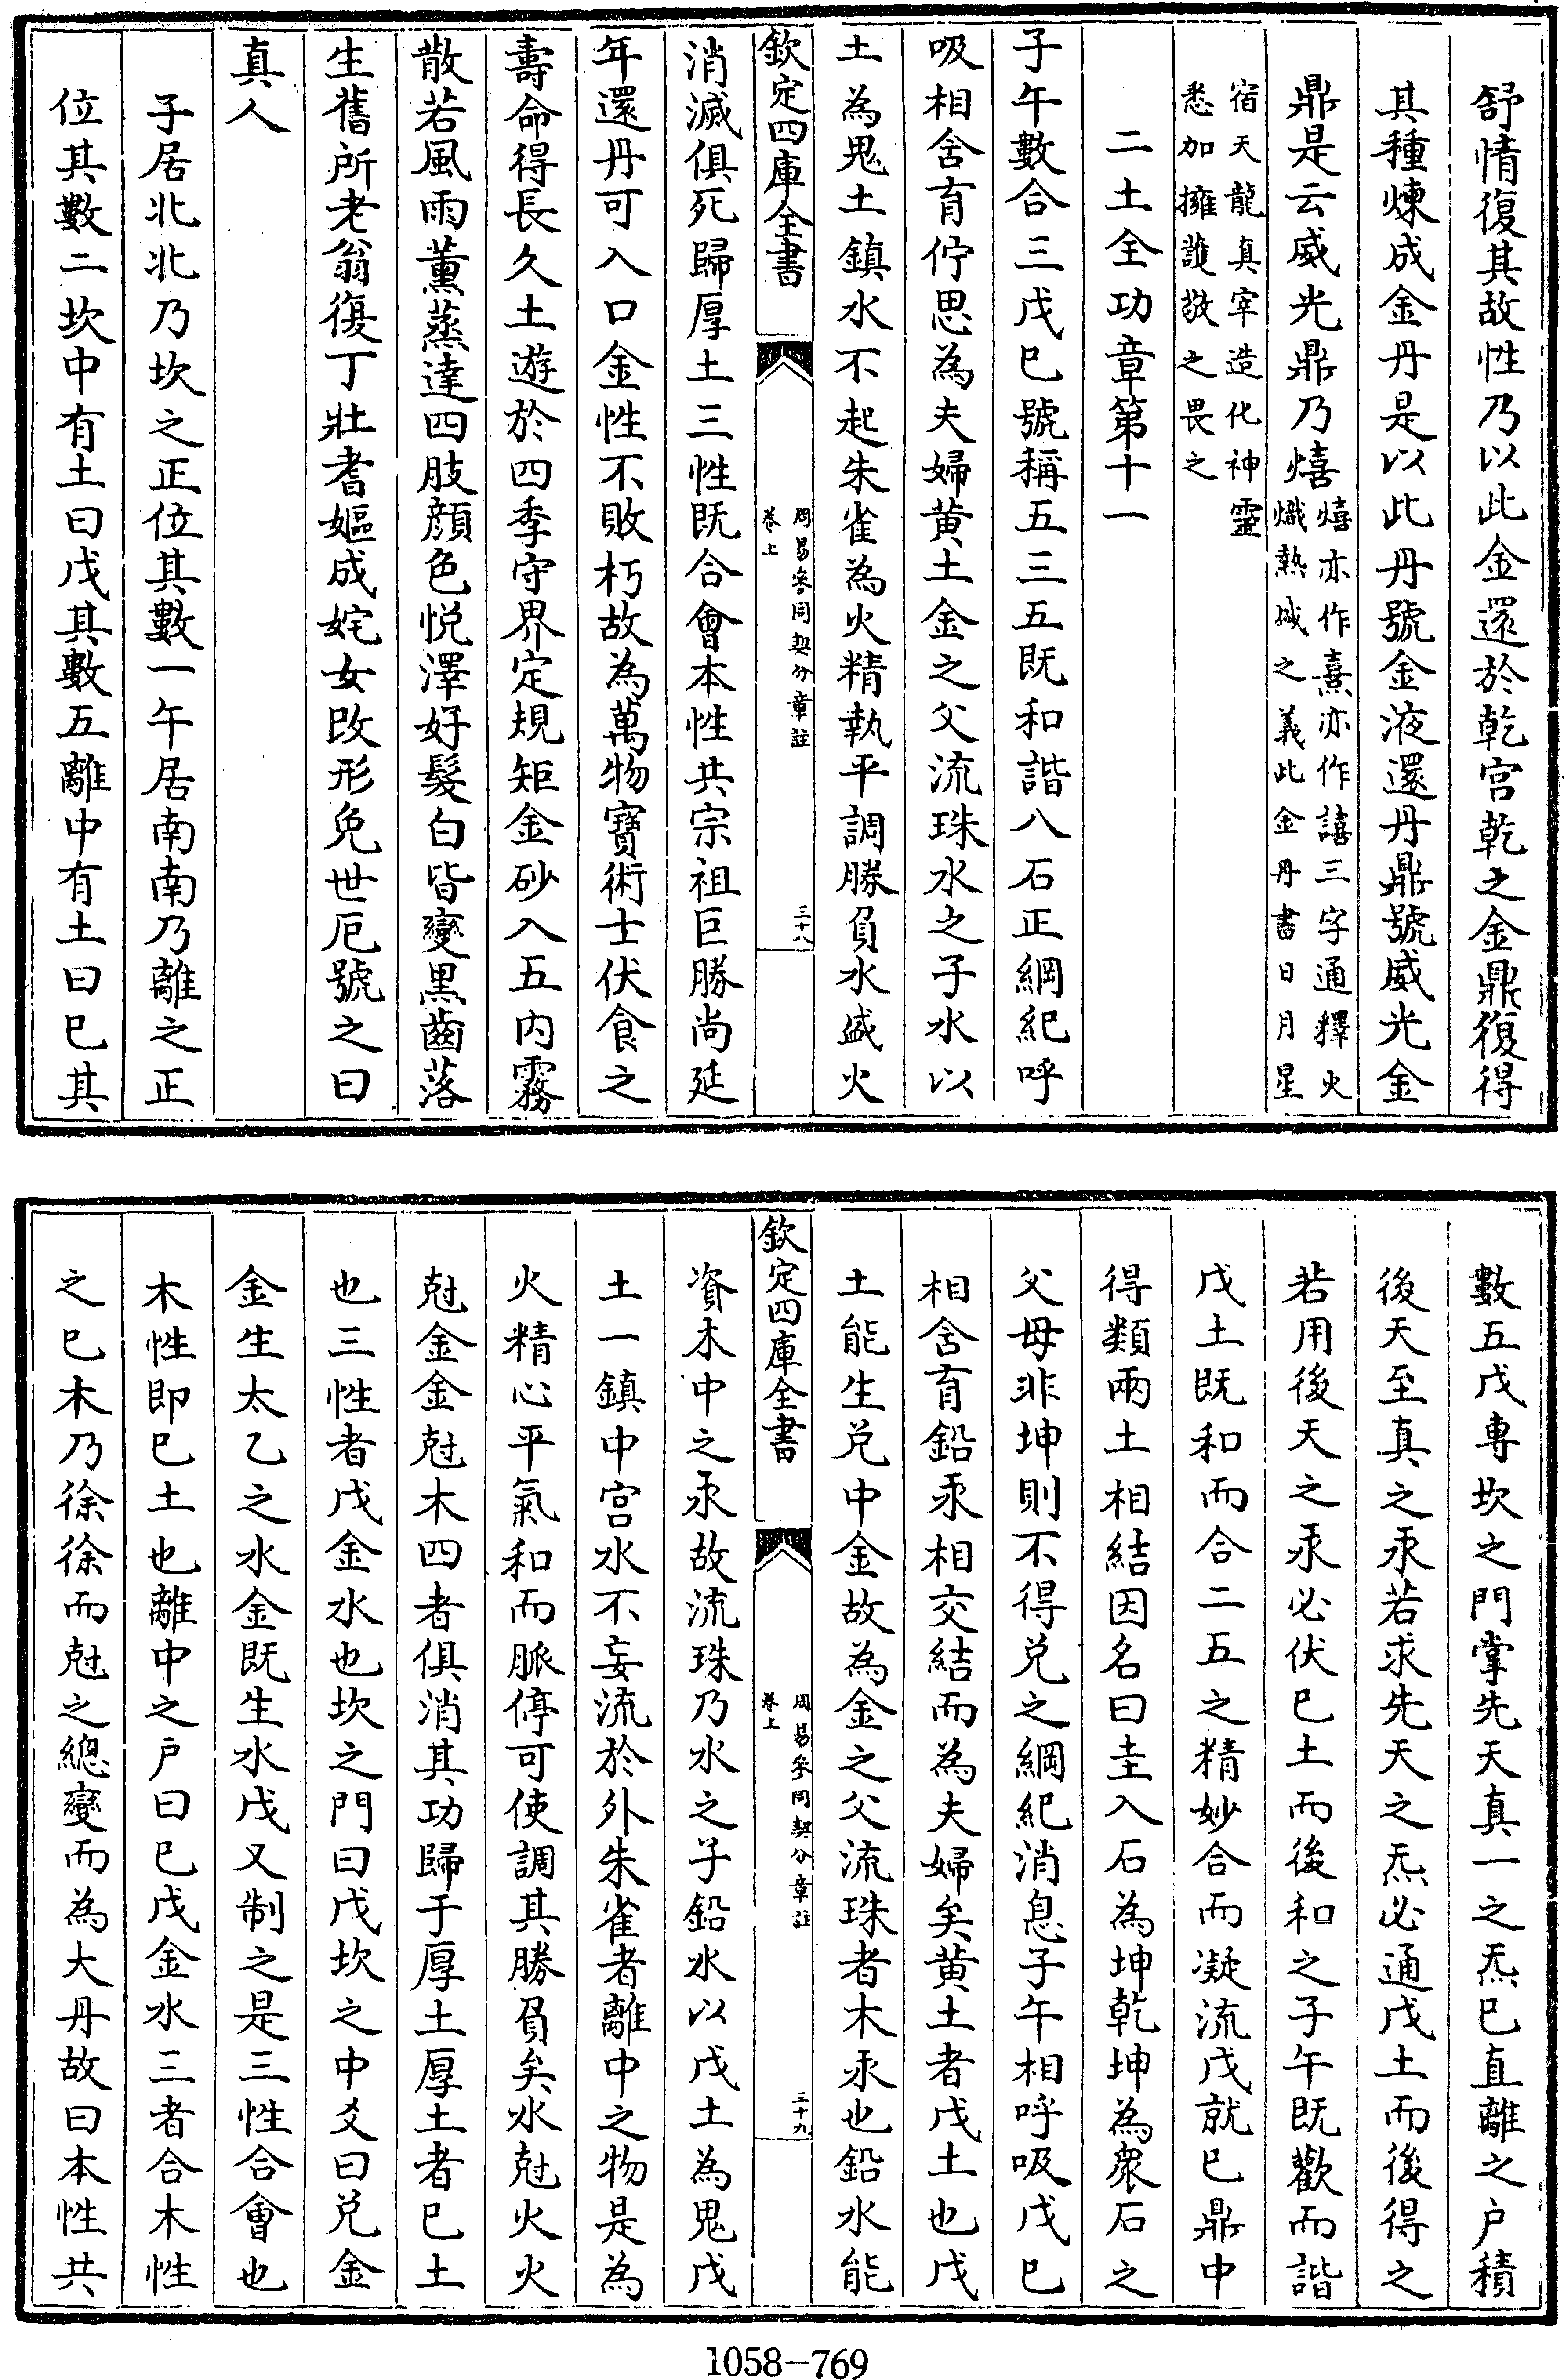 舒情復其故性乃以此金還於乾宮乾之金鼎復得
其種煉成金丹是以此丹號金液還丹鼎號威光金
鼎是云威光鼎乃熺熺亦作熹亦作譆三字通釋火
熾熱城之義此金丹書日月星
宿天龍真宰造化神靈
悉加擁護敬之畏之
二土全功章第十一
子午數合三戊巳號稱五三五既和諧八石正綱紀呼
吸相含育佇思為夫婦黄土金之父流珠水之子水以
土為鬼土鎮水不起朱雀為火精執平調勝負水盛火
欽定四庫全書
周易參同契分章註
卷上
三十八
消滅俱死歸厚土三性既合會本性共宗祖巨勝尚延
年還丹可入口金性不敗朽故為萬物寶術士伏食之
壽命得長久土遊於四季守界定規矩金砂入五内霧
散若風雨薰蒸達四肢顔色悦澤好髮白皆變黒齒落
生舊所老翁復丁壯耆嫗成姹女改形免世厄號之曰
真人
子居北北乃坎之正位其數一午居南南乃離之正
位其數二坎中有土曰戊其數五離中有土曰巳其
數五戊専坎之門掌先天真一之炁巳直離之户積
後天至真之汞若求先天之炁必通戊土而後得之
若用後天之汞必伏巳土而後和之子午既歡而諧
戊土既和而合二五之精妙合而凝流戊就巳鼎中
得類兩土相結因名曰圭入石為坤乾坤為衆石之
父母非坤則不得兑之綱紀消息子午相呼吸戊巳
相含育鉛汞相交結而為夫婦矣黄土者戊土也戊
土能生兑中金故為金之父流珠者木汞也鉛水能
欽定四庫全書
周易參同契分章註
卷上
三十九
資木中之汞故流珠乃水之子鉛水以戊土為鬼戊
土一鎮中宮水不妄流於外朱雀者離中之物是為
火精心平氣和而脈停可使調其勝負矣水尅火火
尅金金尅木四者俱消其功歸于厚土厚土者巳土
也三性者戊金水也坎之門曰戊坎之中爻曰兑金
金生太乙之水金既生水戊又制之是三性合會也
木性即巳土也離中之户曰巳戊金水三者合木性
之巳木乃徐徐而尅之總變而為大丹故曰本性共
1058-769